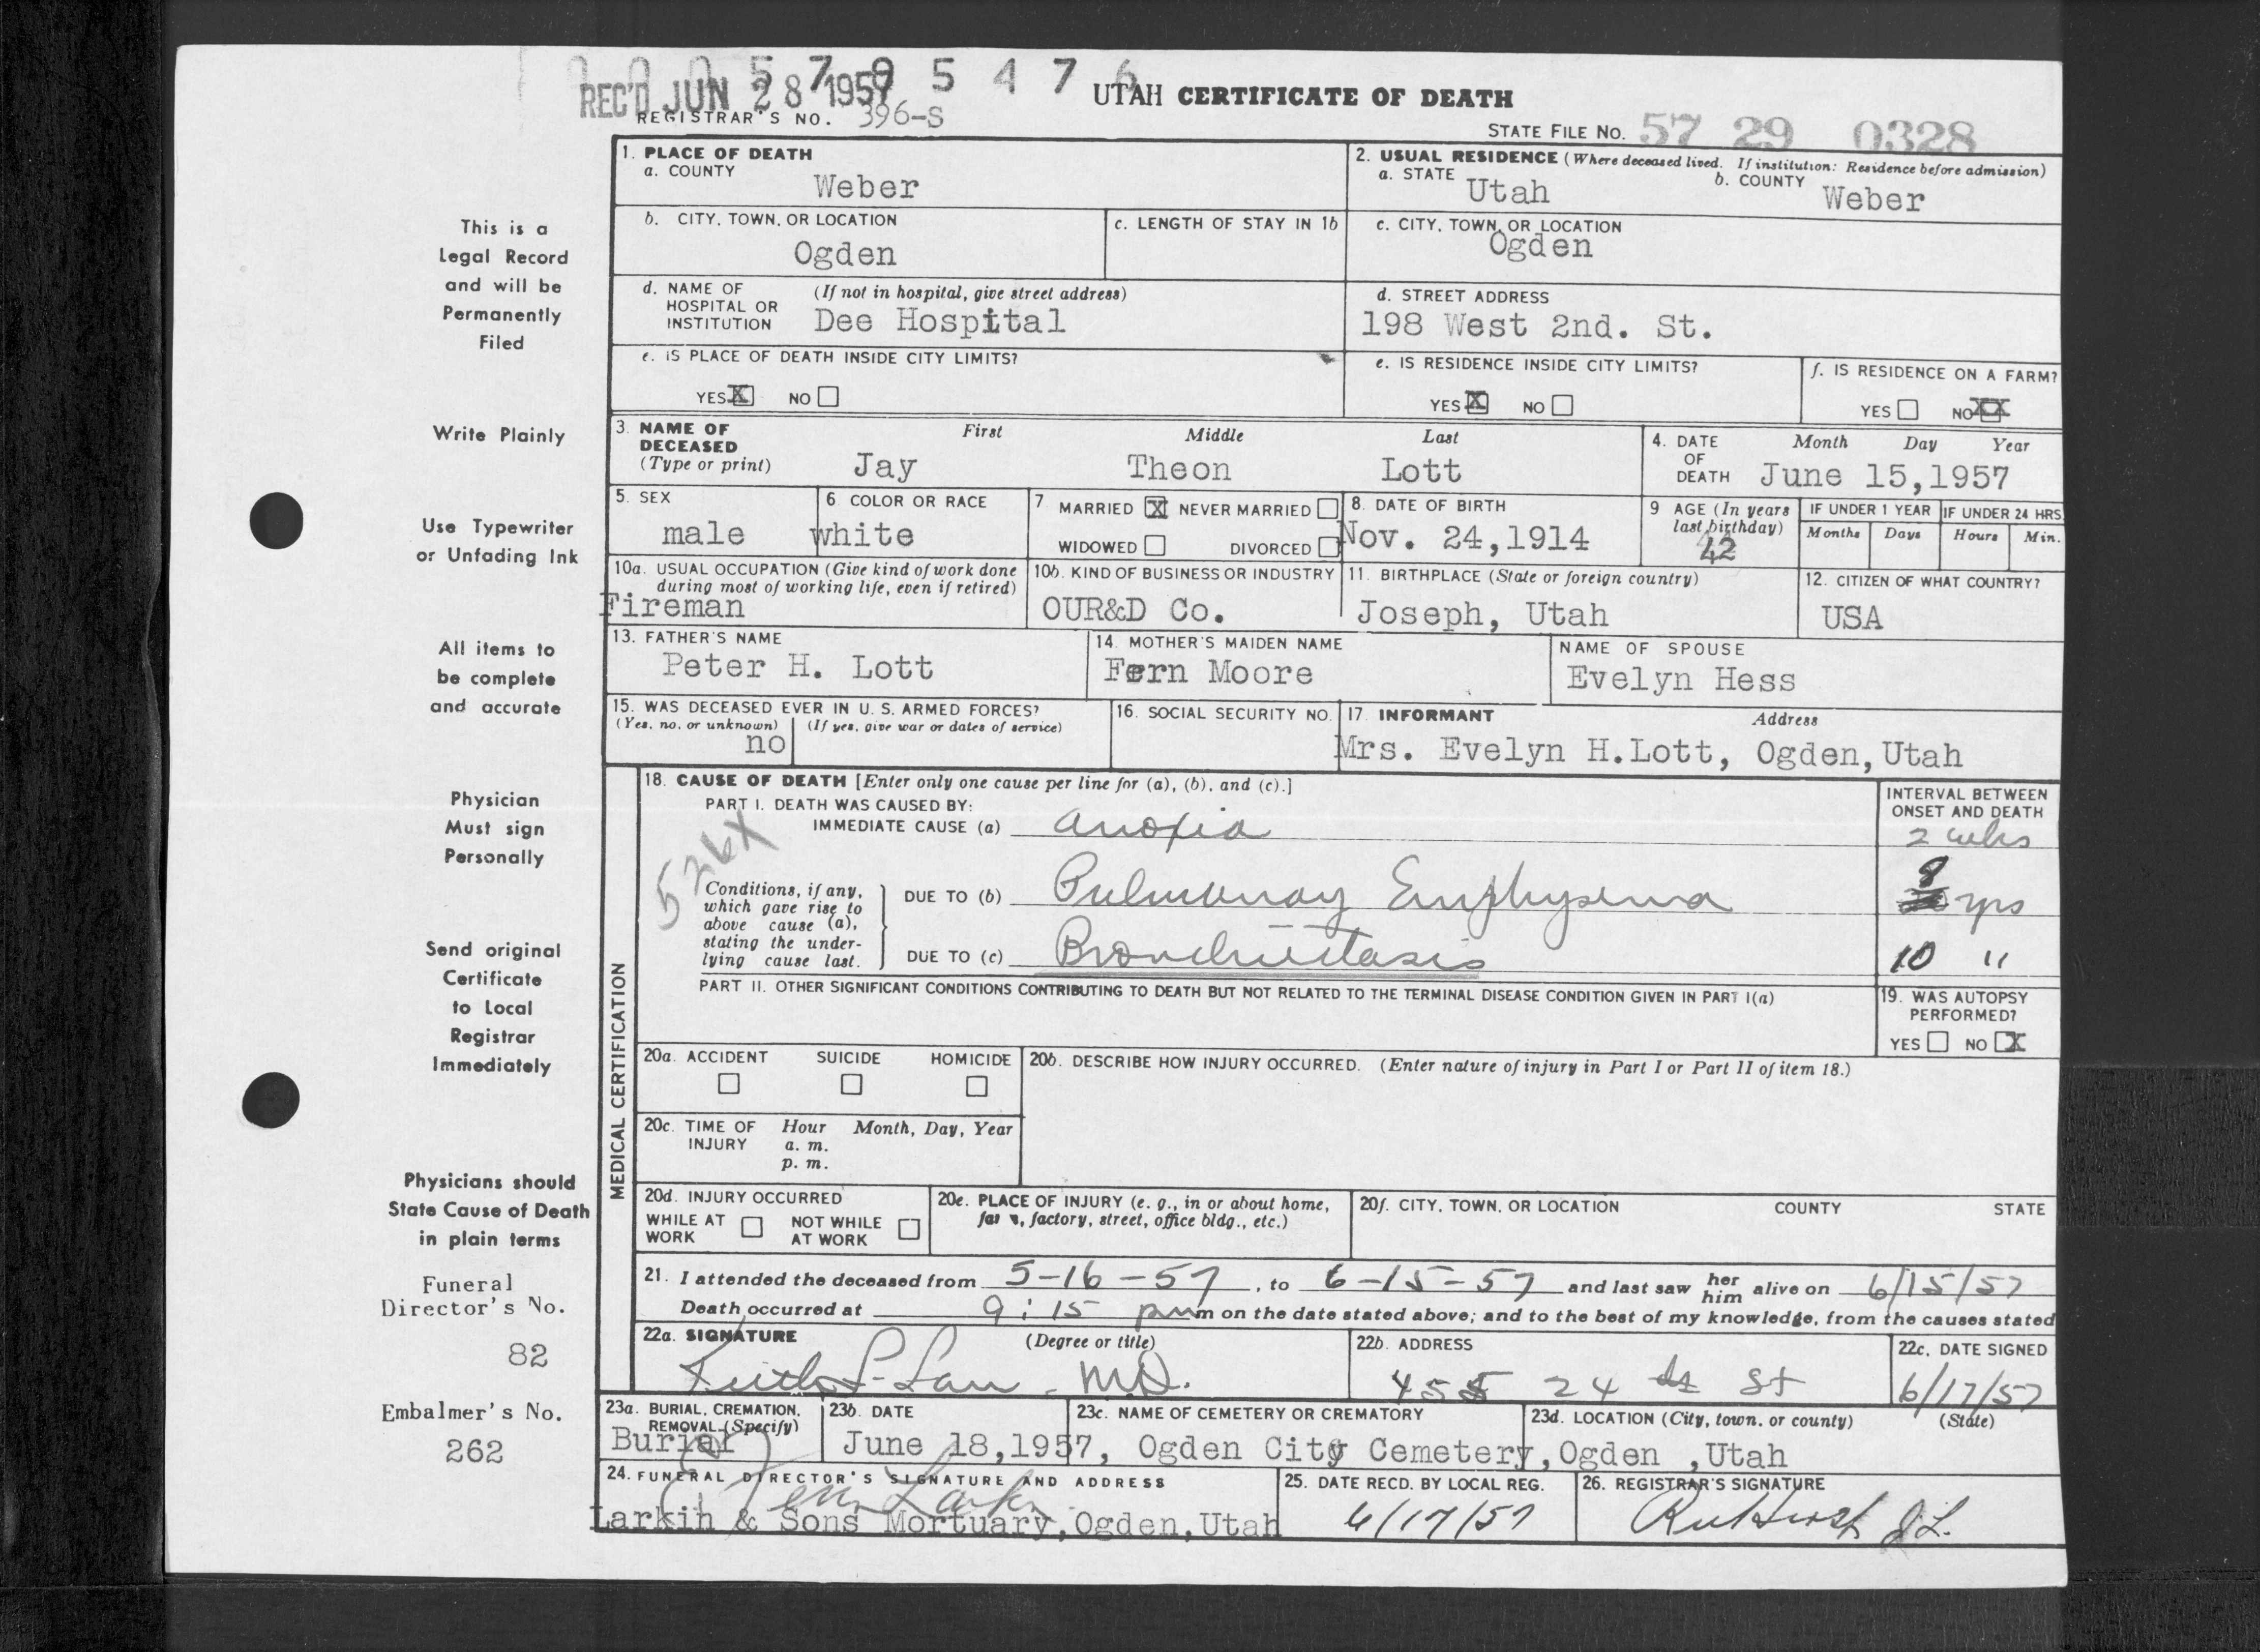 0 0 0 5 7 0 5 4 7 6
REC'D JUN 28 1957
UTAH CERTIFICATE OF DEATH
REGISTRAR'S NO. 396-S
STATE FILE NO. 57 29 0328
This is a
Legal Record
and will be
Permanently
Filed
Write Plainly
Use Typewriter
or Unfading Ink
All items to
be complete
and accurate
Physician
Must sign
Personally
Send original
Certificate
to Local
Registrar
Immediately
Physicians should
State Cause of Death
in plain terms
Funeral
Director's No.
82
Embalmer's No.
262
1. PLACE OF DEATH
a. COUNTY
Weber
2. USUAL RESIDENCE (Where deceased lived. If institution: Residence before admission)
a. STATE Utah b. COUNTY Weber
b. CITY, TOWN, OR LOCATION
Ogden
c. LENGTH OF STAY IN 1b
c. CITY, TOWN, OR LOCATION
Ogden
d. NAME OF HOSPITAL OR INSTITUTION (If not in hospital, give street address)
Dee Hospital
d. STREET ADDRESS
198 West 2nd. St.
e. IS PLACE OF DEATH INSIDE CITY LIMITS?
YES X NO
e. IS RESIDENCE INSIDE CITY LIMITS?
YES X NO
f. IS RESIDENCE ON A FARM?
YES NO XX
3. NAME OF DECEASED (Type or print)
First Middle Last
Jay Theon Lott
4. DATE OF DEATH
Month Day Year
June 15,1957
5. SEX
male
6 COLOR OR RACE
white
7 MARRIED X NEVER MARRIED
WIDOWED DIVORCED
8. DATE OF BIRTH
Nov. 24,1914
9 AGE (In years last birthday)
42
IF UNDER 1 YEAR IF UNDER 24 HRS.
Months Days Hours Min.
10a. USUAL OCCUPATION (Give kind of work done during most of working life, even if retired)
Fireman
10b. KIND OF BUSINESS OR INDUSTRY
OUR&D Co.
11. BIRTHPLACE (State or foreign country)
Joseph, Utah
12. CITIZEN OF WHAT COUNTRY?
USA
13. FATHER'S NAME
Peter H. Lott
14. MOTHER'S MAIDEN NAME
Fern Moore
NAME OF SPOUSE
Evelyn Hess
15. WAS DECEASED EVER IN U. S. ARMED FORCES?
(Yes, no, or unknown) (If yes, give war or dates of service)
no
16. SOCIAL SECURITY NO.
17. INFORMANT Address
Mrs. Evelyn H.Lott, Ogden,Utah
MEDICAL CERTIFICATION
18. CAUSE OF DEATH [Enter only one cause per line for (a), (b), and (c).]
INTERVAL BETWEEN ONSET AND DEATH
PART I. DEATH WAS CAUSED BY:
IMMEDIATE CAUSE (a) Anoxia 2 wks
526X
Conditions, if any, which gave rise to above cause (a), stating the underlying cause last.
DUE TO (b) Pulmonary Emphysema 8 yrs
DUE TO (c) Bronchiectasis 10 "
PART II. OTHER SIGNIFICANT CONDITIONS CONTRIBUTING TO DEATH BUT NOT RELATED TO THE TERMINAL DISEASE CONDITION GIVEN IN PART I(a)
19. WAS AUTOPSY PERFORMED?
YES NO X
20a. ACCIDENT SUICIDE HOMICIDE
20b. DESCRIBE HOW INJURY OCCURRED. (Enter nature of injury in Part I or Part II of item 18.)
20c. TIME OF INJURY Hour Month, Day, Year
a. m.
p. m.
20d. INJURY OCCURRED
WHILE AT WORK NOT WHILE AT WORK
20e. PLACE OF INJURY (e. g., in or about home, farm, factory, street, office bldg., etc.)
20f. CITY, TOWN, OR LOCATION COUNTY STATE
21. I attended the deceased from 5-16-57, to 6-15-57 and last saw her him alive on 6/15/57
Death occurred at 9:15 pm m on the date stated above; and to the best of my knowledge, from the causes stated
22a. SIGNATURE (Degree or title)
M.D.
22b. ADDRESS
455 24 St
22c. DATE SIGNED
6/17/57
23a. BURIAL, CREMATION, REMOVAL (Specify)
Burial
23b. DATE
June 18,1957,
23c. NAME OF CEMETERY OR CREMATORY
Ogden City Cemetery,
23d. LOCATION (City, town, or county) (State)
Ogden ,Utah
24. FUNERAL DIRECTOR'S SIGNATURE AND ADDRESS
Larkin & Sons Mortuary,Ogden,Utah
25. DATE RECD. BY LOCAL REG.
6/17/57
26. REGISTRAR'S SIGNATURE